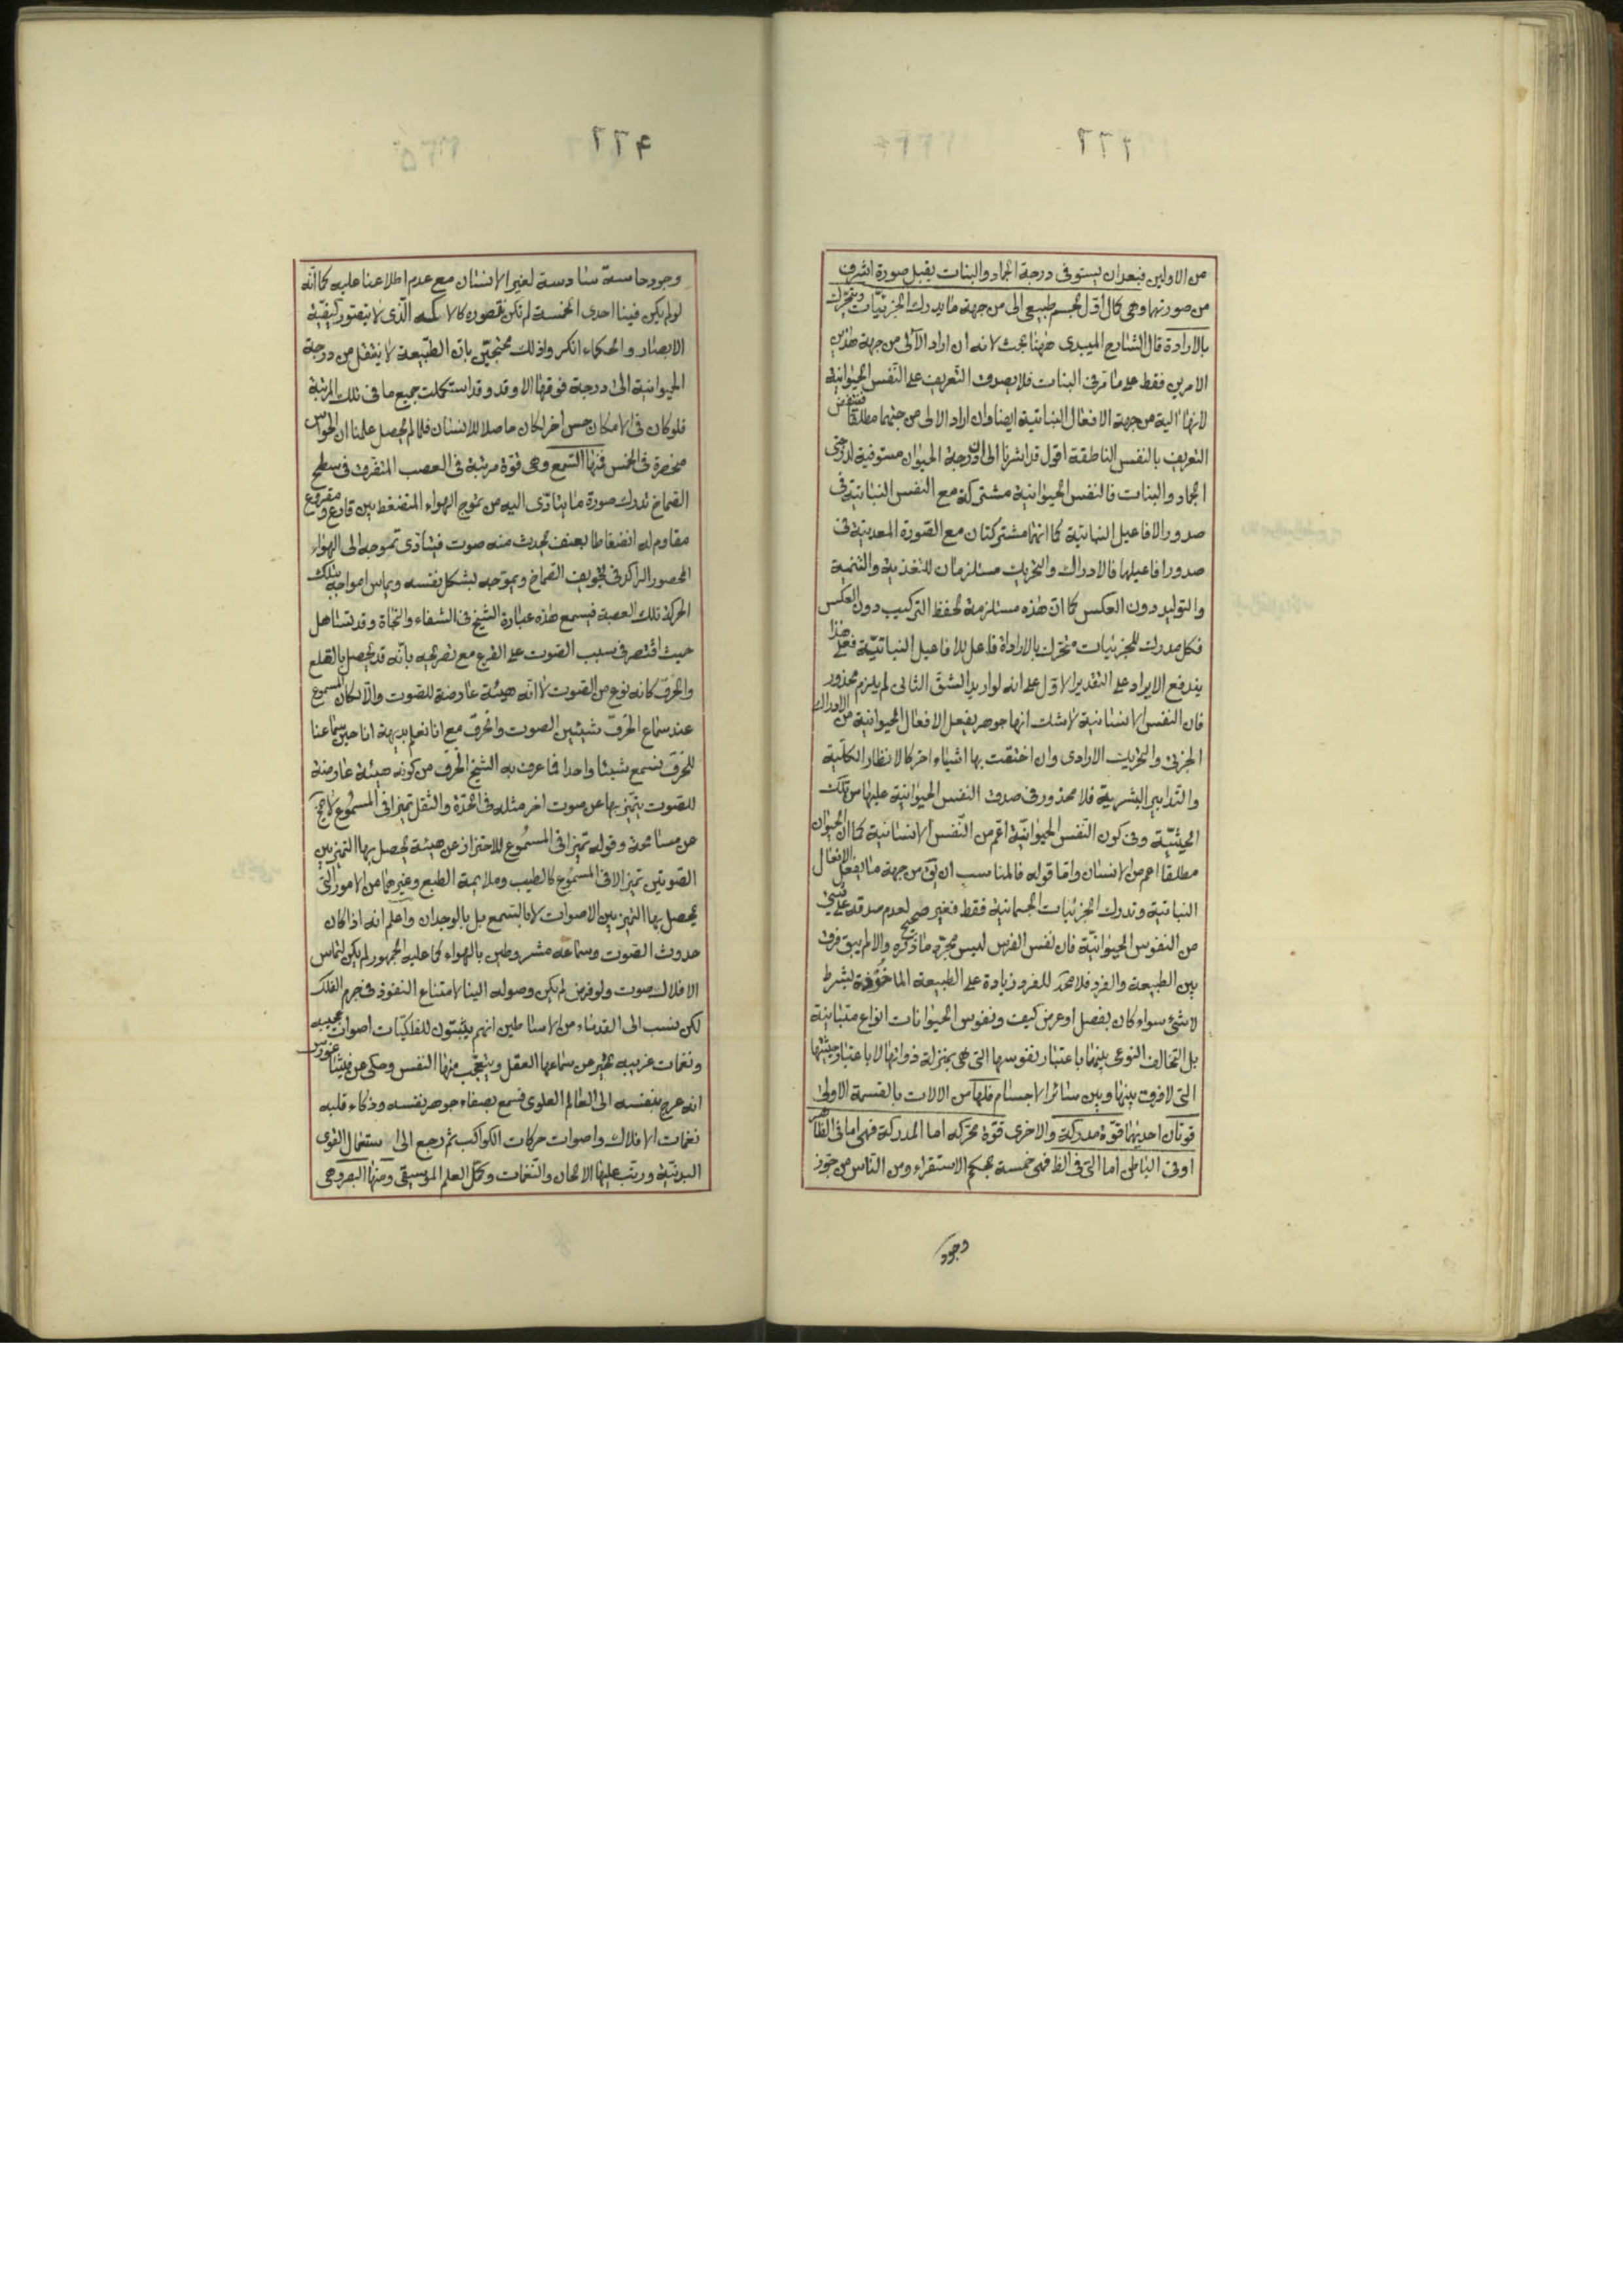 ٢٢٣
من الاولين فبعد ان يستوفى درجة الجماد والنبات يقبل صورة اشرف
من صورتها وهى كمال اول لجسم طبيعى الى من جهة ما يدرك الجزئيات ويتحرك
بالارادة قال الشارح الميبدى ههنا بحث لانه ان اراد الآلى من جهة هذين
الامرين فقط على ما مر فى النبات فلا يصدق التعريف على النفس الحيوانية
لانها الية من جهة الافعال النباتية ايضا وان اراد الالى من جهتها مطلقا فينتقض
التعريف بالنفس الناطقة اقول قد اشرنا الى ان درجة الحيوان مستوفية لدرجتى
الجماد والنبات فالنفس الحيوانية مشتركة مع النفس النباتية فى
صدور الافاعيل النباتية كما انهما مشتركتان مع الصورة المعدنية فى
صدور افاعيلها فالادراك والتحريك مستلزمان للتغذية والتنمية
والتوليد دون العكس كما ان هذه مستلزمة لحفظ التركيب دون العكس
فكل مدرك للجزئيات متحرك بالارادة فاعل للافاعيل النباتية فعلى هذا
يندفع الايراد على التقدير الاول على انه لو اريد الشق الثانى لم يلزم محذور
فان النفس الانسانية لا شك انها جوهر يفعل الافعال الحيوانية من الادراك
الجزئى والتحريك الارادى وان اختصت بها اشياء اخر كالانظار الكلية
والتدابير البشرية فلا محذور فى صدق النفس الحيوانية عليها من تلك
الحيثية وفى كون النفس الحيوانية اعم من النفس الانسانية كما ان الحيوان
مطلقا اعم من الانسان واما قوله فالمناسب ان يق من جهة ما يفعل الافعال
النباتية وتدرك الجزئيات الجسمانية فقط فغير صحيح لعدم صدقه على شئ
من النفوس الحيوانية فان نفس الفرس ليس مجرد ما ذكره والا لم يبق فرق
بين الطبيعة والفرد فلا محة للفرد زيادة على الطبيعة الماخوذة بشرط
لا شئ سواء كان بفصل او عرض كيف ونفوس الحيوانات انواع متباينة
بل التخالف النوعى بينها باعتبار نفوسها التى هى بمنزلة ذواتها لا باعتبار جثتها
التى لا فرق بينها وبين سائر الاجسام فلها من الالات بالقسمة الاولى
قوتان احديهما قوة مدركة والاخرى قوة محركة اما المدركة فهى اما فى الظاهر
او فى الباطن اما التى فى الظ فهى خمسة بحكم الاستقراء ومن الناس من جوز
وجود
٢٢٤
وجود حاسة سادسة لغير الانسان مع عدم اطلاعنا عليه كما انه
لو لم يكن فينا احدى الخمسة لم تكن نتصوره كالاكمه الذى لا يتصور كيفية
الابصار والحكماء انكروا ذلك محتجين بان الطبيعة لا ينتقل من درجة
الحيوانية الى درجة فوقها الا وقد وقد استكملت جميع ما فى تلك المرتبة
فلو كان فى الامكان حس اخر لكان حاصلا للانسان فلما لم يحصل علمنا ان الحواس
منحصرة فى الخمس فمنها السمع وهى قوة مرتبة فى العصب المتفرق فى سطح
الصماخ تدرك صورة ما يتادى اليه من تموج الهواء المنضغط بين قارع ومقروع
مقاوم له انضغاطا بعنف يحدث منه صوت فيتادى تموجه الى الهواء
المحصور الراكد فى تجويف الصماخ ويموجه بشكل نفسه ويماس امواجه بتلك
الحركة تلك العصبة فيسمع هذه عبارة الشيخ فى الشفاء والنجاة وقد تساهل
حيث اقتصر فى سبب الصوت على القرع مع تصريحه بانه قد يحصل بالقلع
والحرف كانه نوع من الصوت لا انه هيئة عارضة للصوت والا لكان المسموع
عند سماع الحرف شيئين الصوت والحرف مع انا نعلم بديهة انا حين سماعنا
للحرف نسمع شيئا واحدا فما عرف به الشيخ الحرف من كونه هيئة عارضة
للصوت يتميز بها عن صوت اخر مثله فى الحدة والثقل تميزا فى المسموع لا يخ
عن مسامحة وقوله تميزا فى المسموع للاحتراز عن هيئة يحصل بها التميز بين
الصوتين تميزا لا فى المسموع كالطيب وملايمة الطبع وغيرهما من الامور التى
يحصل بها التميز بين الاصوات لا بالسمع بل بالوجدان واعلم انه اذا كان
حدوث الصوت وسماعه مشروطين بالهواء كما عليه الجمهور لم يكن لتماس
الافلاك صوت ولو فرض لم يكن وصوله الينا لامتناع النفوذ فى جرم الفلك
لكن نسب الى القدماء من الاساطين انهم يثبتون للفلكيات اصوات عجيبه
ونغمات غريبه يتحير من سماعها العقل ويتعجب منها النفس وحكى عن فيثاغورس
انه عرج بنفسه الى العالم العلوى فسمع بصفاء جوهر نفسه وذكاء قلبه
نغمات الافلاك واصوات حركات الكواكب ثم رجع الى استعمال القوى
البدنية ورتب عليها الالحان والنغمات وكمل لعلم الموسيقى ومنها البصر وهى